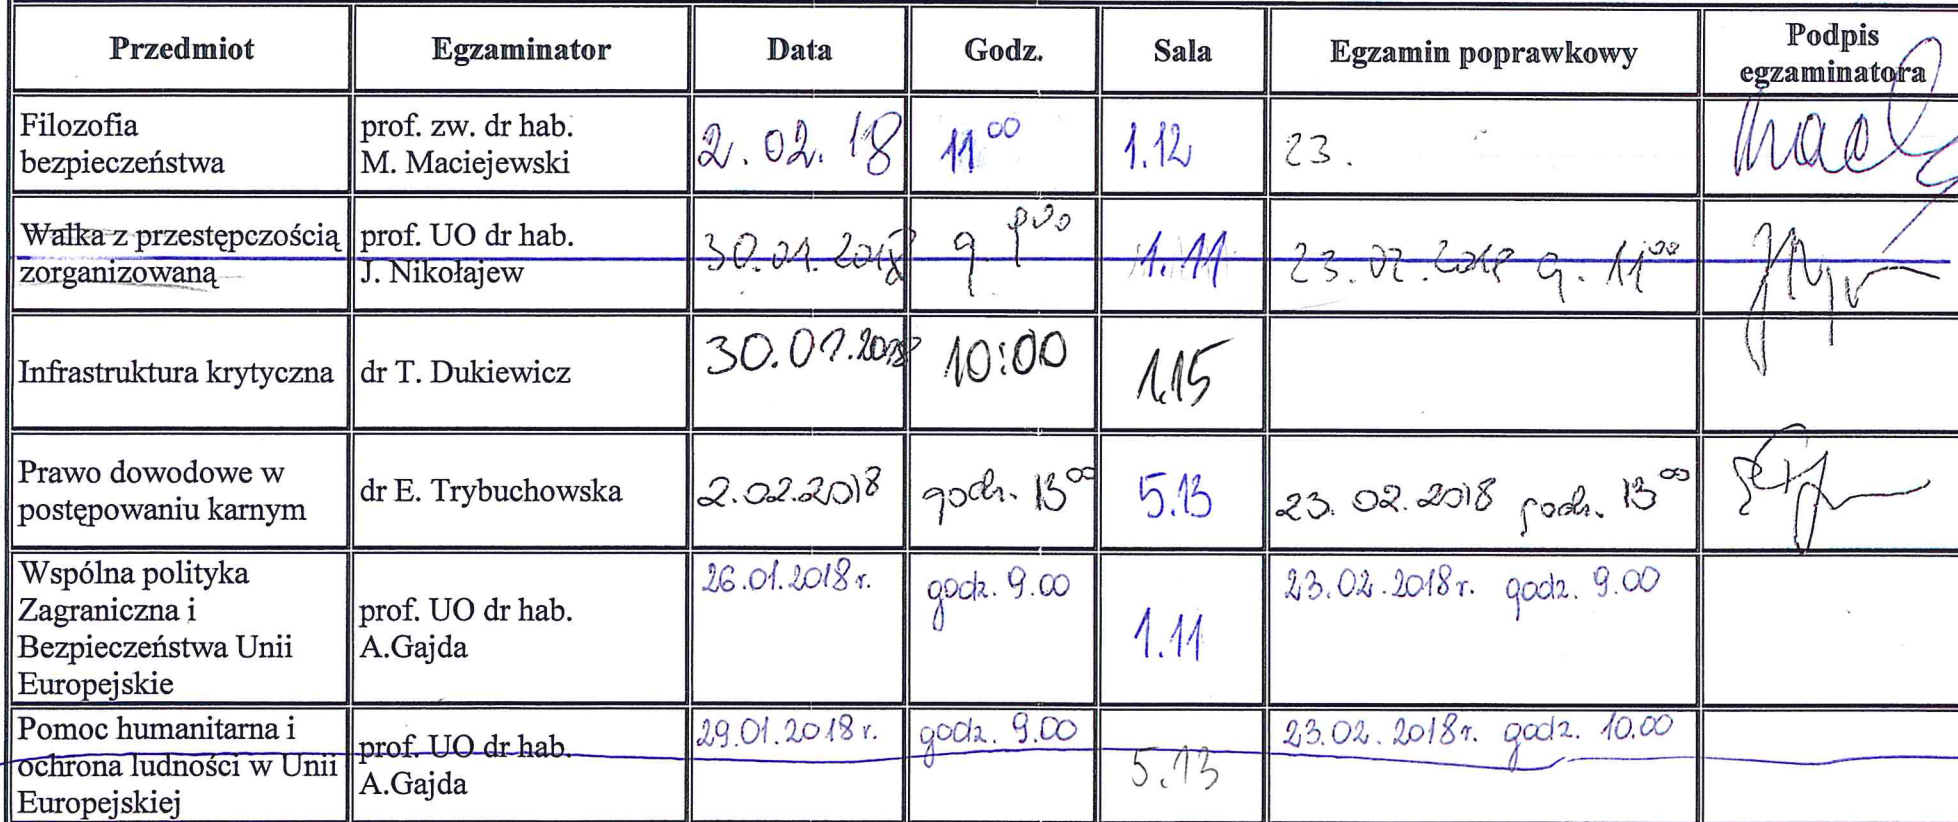 Przedmiot Egzaminator Data Godz. Sala Egzamin poprawkowy Podpis
egzaminatora
Filozofia
bezpieczeństwa
prof. zw. dr hab.
M. Maciejewski
2.02.18 11⁰⁰ 1.12 23.
Walka z przestępczością
zorganizowaną
prof. UO dr hab.
J. Nikołajew
30.01.2018 g. 1.11 23.02.2018 g. 11⁰⁰
Infrastruktura krytyczna dr T. Dukiewicz 30.01.2018 10:00 1.15
Prawo dowodowe w
postępowaniu karnym
dr E. Trybuchowska 2.02.2018 godz. 13⁰⁰ 5.13 23.02.2018 godz. 13⁰⁰
Wspólna polityka
Zagraniczna i
Bezpieczeństwa Unii
Europejskie
prof. UO dr hab.
A.Gajda
26.01.2018r. godz. 9.00 1.11 23.02.2018r. godz. 9.00
Pomoc humanitarna i
ochrona ludności w Unii
Europejskiej
prof. UO dr hab.
A.Gajda
29.01.2018r. godz. 9.00 5.13 23.02.2018r. godz. 10.00